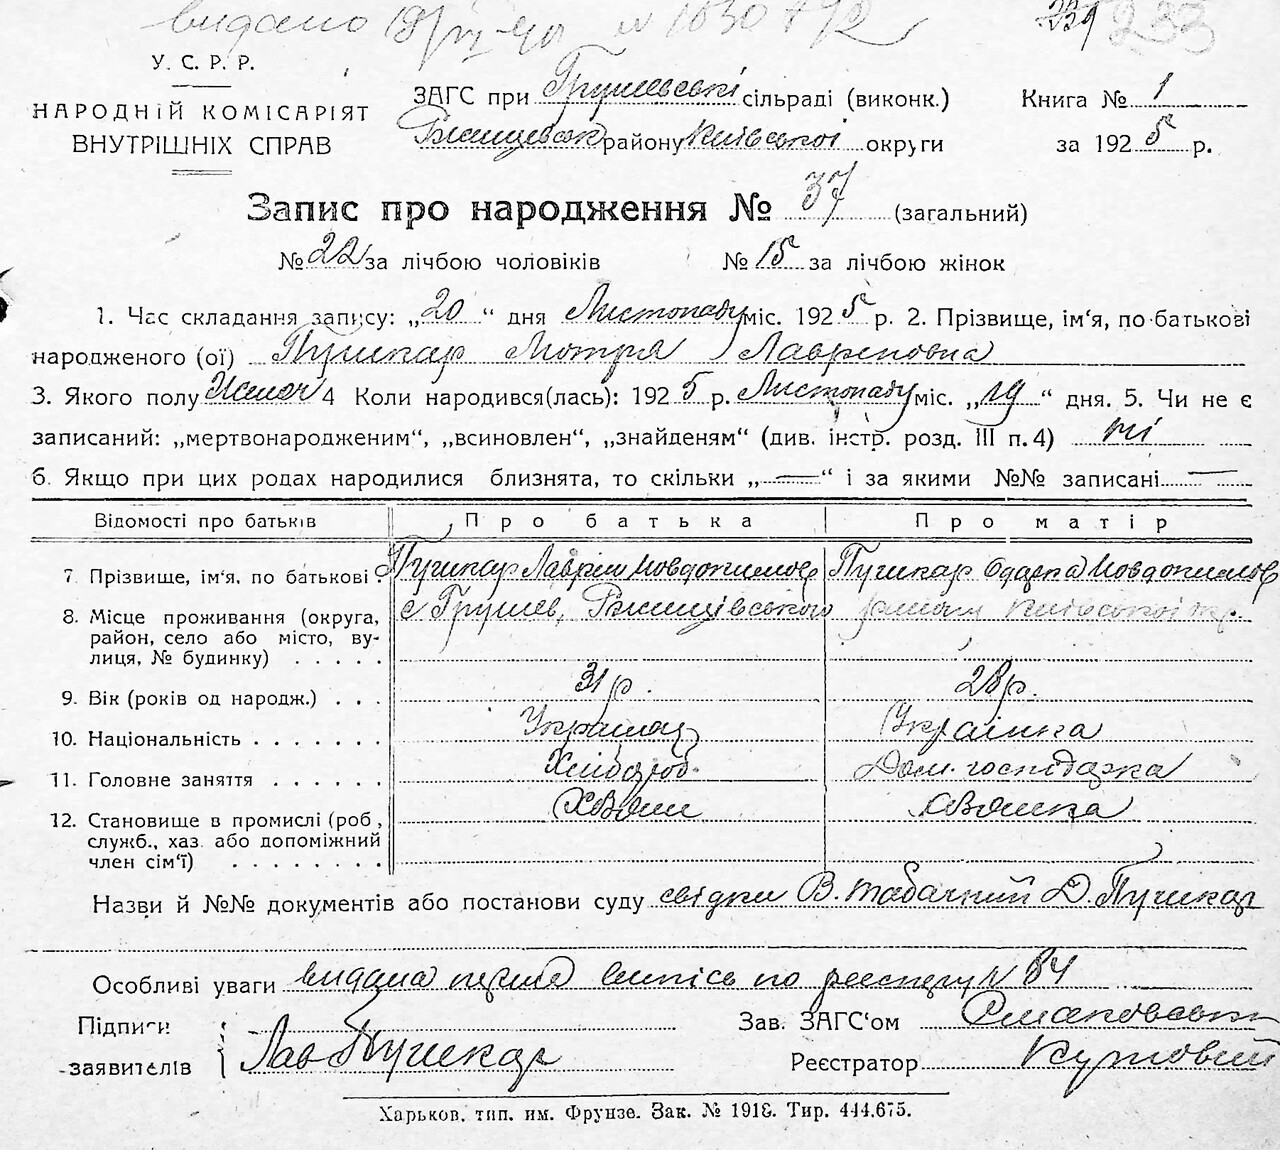 видано № 1030792 239 233
У. С. Р. Р.
НАРОДНІЙ КОМІСАРІЯТ
ВНУТРІШНІХ СПРАВ
ЗАГС при Грушевські сільраді (виконк.)
Ржищевськ району Київської округи
Книга № 1
за 1925 р.
Запис про народження № 37 (загальний)
№ 22 за лічбою чоловіків № 15 за лічбою жінок
1. Час складання запису: „20“ дня Листопаду міс. 1925 р. 2. Прізвище, ім‘я, по-батькові
народженого (ої) Пушкар Мотря Лавреновна
3. Якого полу Жіноч 4 Коли народився(лась): 1925 р. Листопаду міс. „19“ дня. 5. Чи не є
записаний: „мертвонародженим“, „всиновлен“, „знайденям“ (див. інстр. розд. III п. 4) ні
6. Якщо при цих родах народилися близнята, то скільки „—“ і за якими №№ записані —
Відомості про батьків Про батька Про матір
7 Прізвище, ім‘я, по батькові Пушкар Лаврін Пушкар Одарка
8. Місце проживання (округа, с Грушев, Ржищівського району Київської
район, село або місто, ву-
лиця, № будинку) . . . . .
9. Вік (років од народж.) . . . 31 р. 28 р.
10. Національність . . . . . . . Українец Українка
11. Головне заняття . . . . . . Хлібороб. Дом. господарка
12. Становище в промислі (роб., Хвояин хвояика
служб., хаз. або допоміжний
член сім‘ї) . . . . . . . .
Назви й №№ документів або постанови суду свідки В. Табачний Д. Пушкар
Особливі уваги видана перша випись по реестру № 84
Підписи
заявителів Лав Пушкар
Зав. ЗАГС‘ом
Реєстратор Кутовий
Харьков, тип. им. Фрунзе. Зак. № 1918. Тир. 444.675.